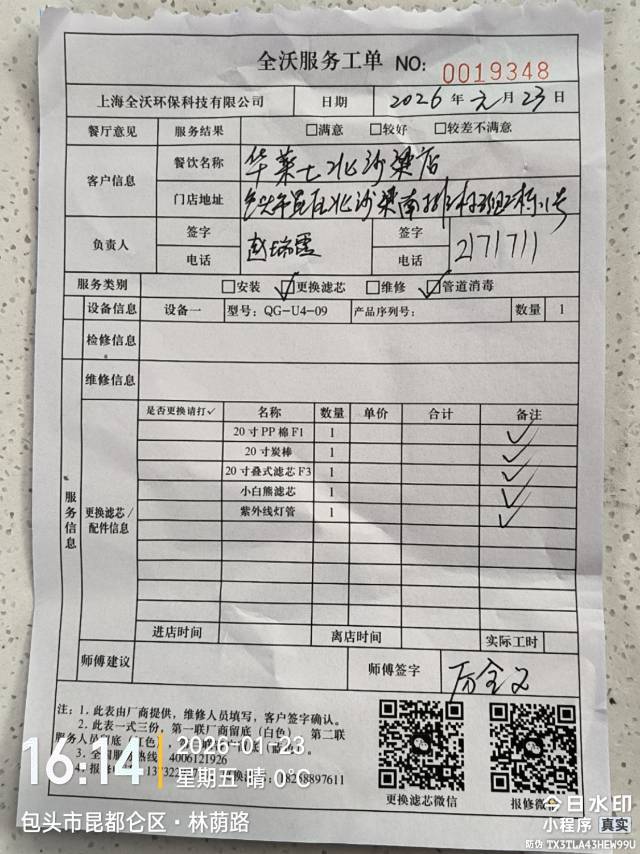 全沃服务工单 NO: 0019348
上海全沃环保科技有限公司 日期 2026 年 元 月 23 日
餐厅意见 服务结果 □满意 □较好 □较差不满意
客户信息 餐饮名称 华莱士北沙梁店
门店地址 北沙梁南排
负责人 签字 赵瑞霞 签字
电话 电话 2171711
服务类别 □安装 ☑更换滤芯 □维修 ☑管道消毒
设备信息 设备一 型号: QG-U4-09 产品序列号: 数量 1
检修信息
维修信息
服务信息
更换滤芯/配件信息
是否更换请打✓ 名称 数量 单价 合计 备注
20寸PP棉F1 1 ✓
20寸炭棒 1 ✓
20寸叠式滤芯F3 1 ✓
小白熊滤芯 1 ✓
紫外线灯管 1 ✓
进店时间 离店时间 实际工时
师傅建议 师傅签字 厉全文
注: 1. 此表由厂商提供, 维修人员填写, 客户签字确认。
2. 此表一式三份, 第一联厂商留底 (白色) 第二联
服务人员留底 (红色)
3. 全国服务热线 4006121926
4. 报修 18258897611
更换滤芯微信 报修微信
16:14 2026-01-23
星期五 晴 0°C
包头市昆都仑区·林荫路
今日水印
小程序 真实
防伪 TX3TLA43HEW99U